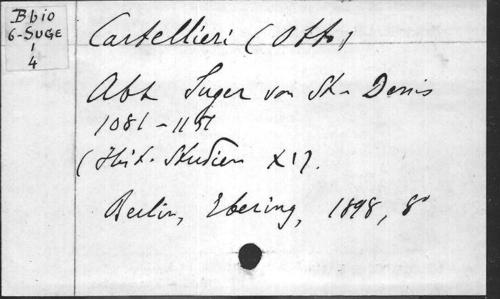 Bbio
6-SUGE
1
4
Cartellieri (Otto)
Abt Suger von St-Denis
1081-1151
(Hist. Studien XI).
Berlin, Ebering, 1898, 8°